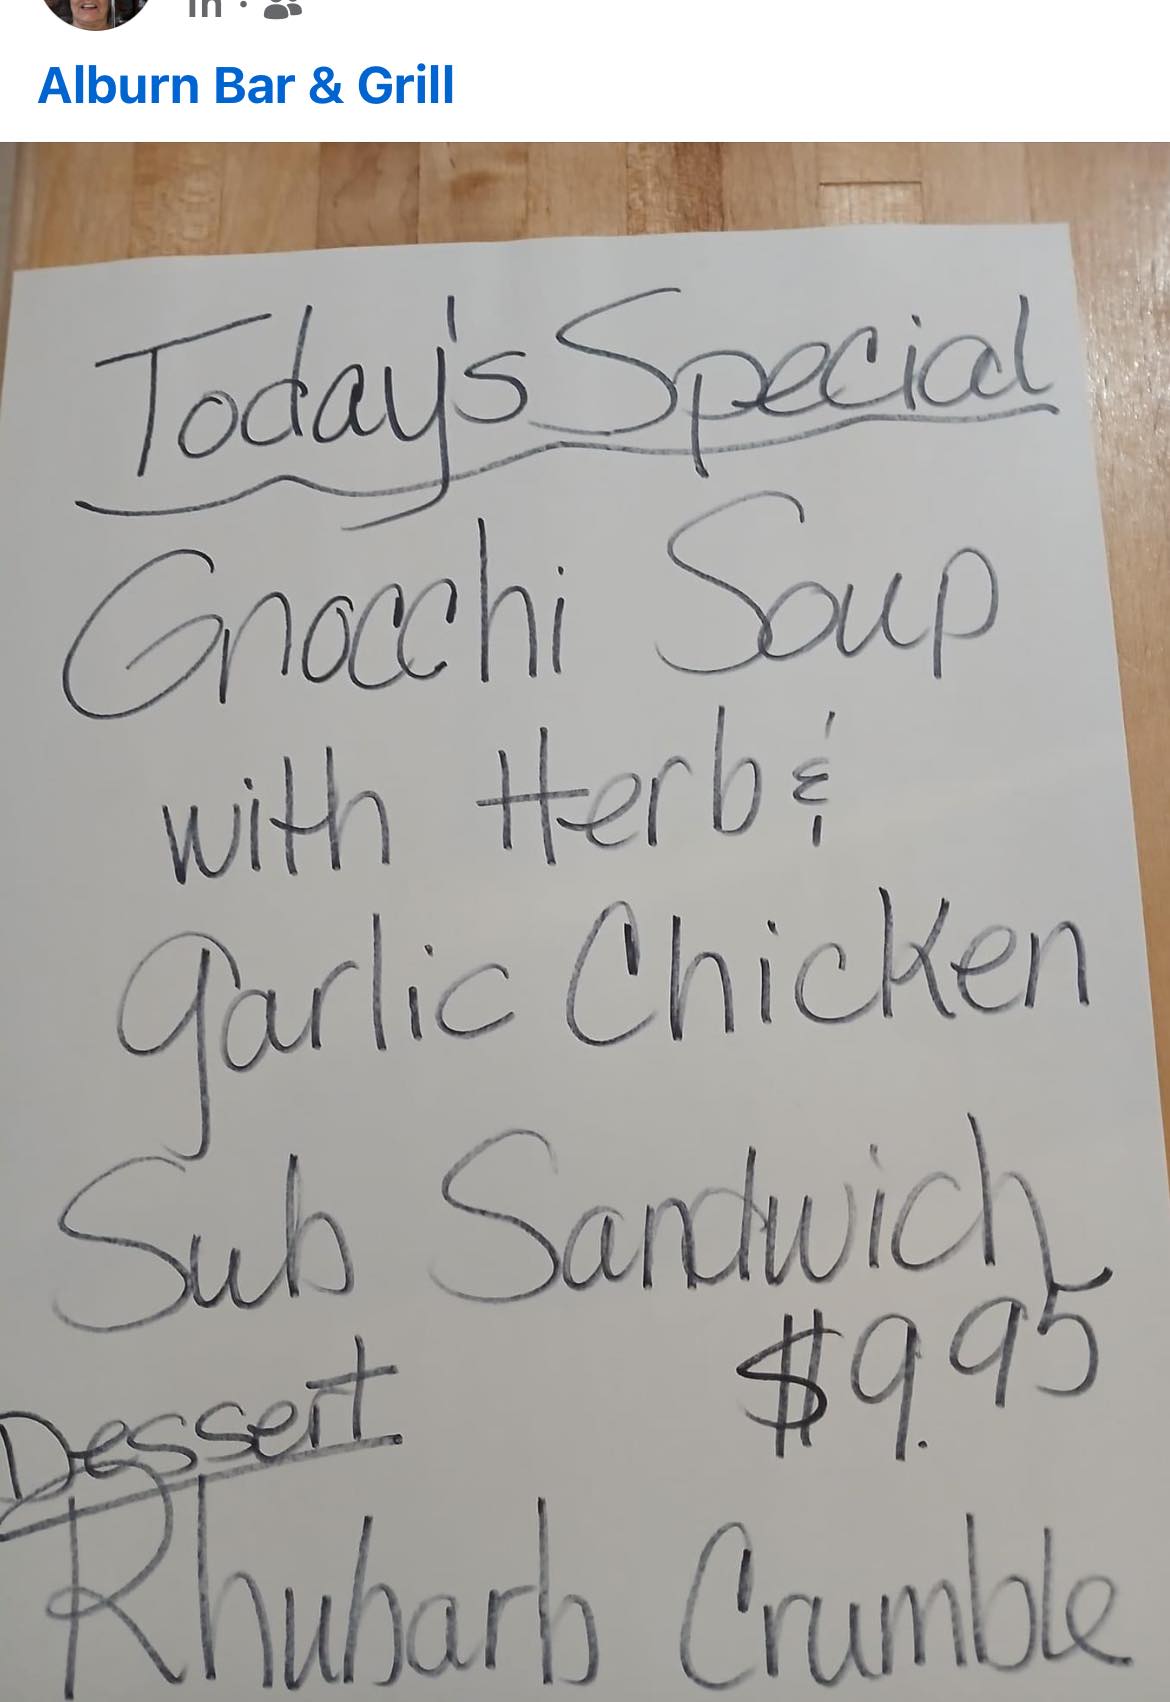 in ·
Alburn Bar & Grill
Today's Special
Gnocchi Soup
with Herb &
garlic Chicken
Sub Sandwich
$9.95
Dessert
Rhubarb Crumble